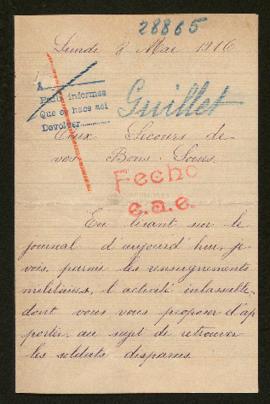 28865
Lundi 8 Mai 1916
A
Para informes
Que se hace asi
Devolver
Guillet
Aux Secours de
vos Bons Soins
Fecho
e.a.e.
En lisant sur le
journal d'aujourd'hui, je
vois, parmi les renseignements
militaires, l'activité inlassable,
dont vous vous proposez d'ap
porter au sujet de retrouver
les soldats disparus